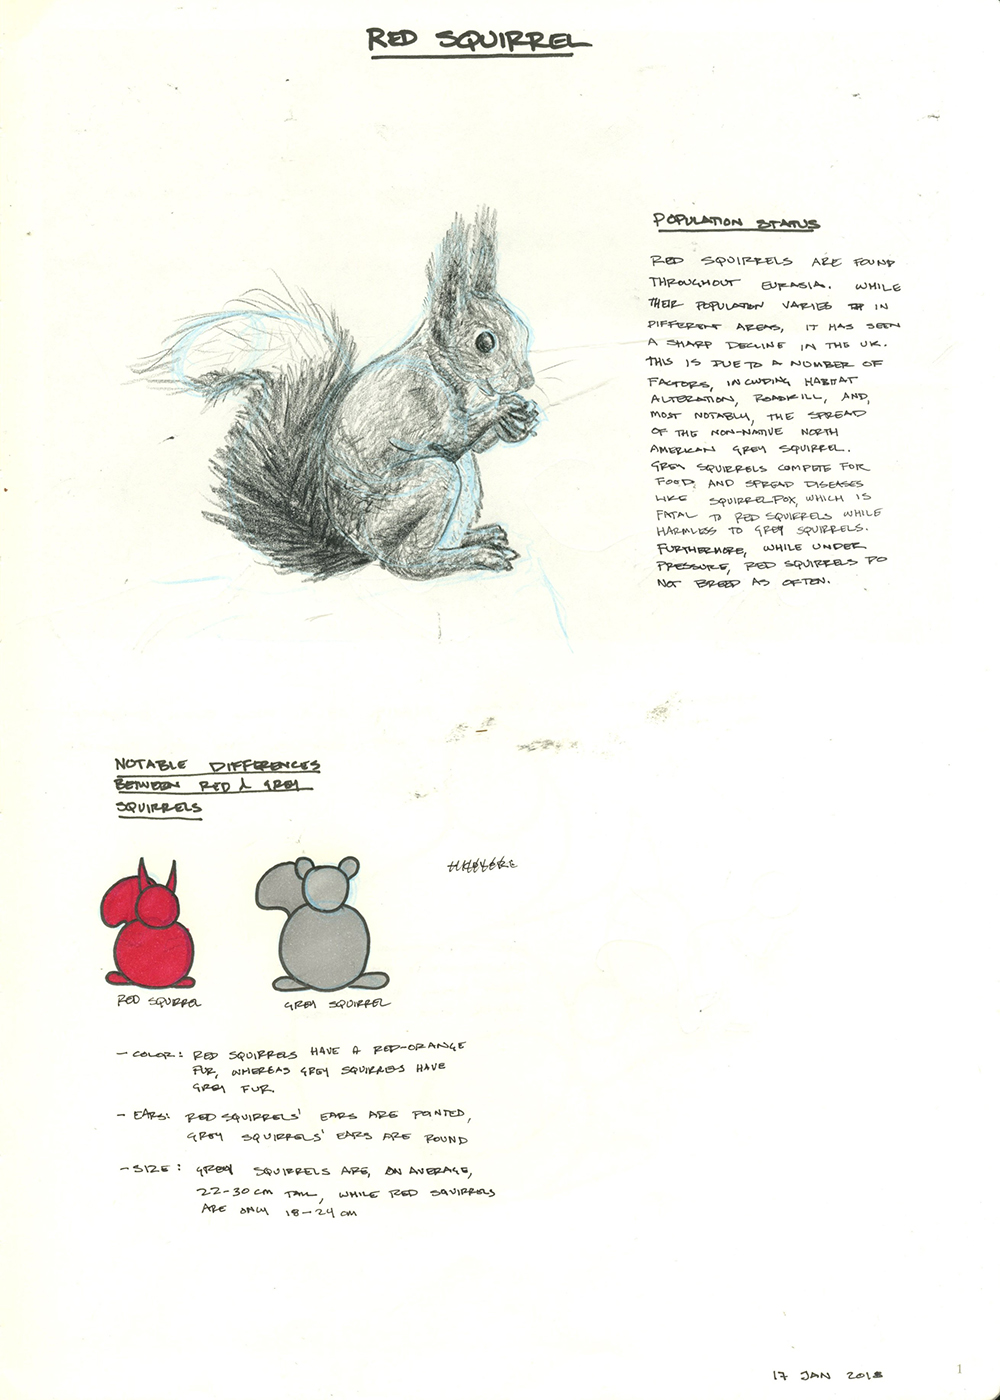 RED SQUIRREL
POPULATION STATUS
RED SQUIRRELS ARE FOUND
THROUGHOUT EURASIA. WHILE
THEIR POPULATION VARIES IN
DIFFERENT AREAS, IT HAS SEEN
A SHARP DECLINE IN THE UK.
THIS IS DUE TO A NUMBER OF
FACTORS, INCLUDING HABITAT
ALTERATION, ROADKILL, AND,
MOST NOTABLY, THE SPREAD
OF THE NON-NATIVE NORTH
AMERICAN GREY SQUIRREL.
GREY SQUIRRELS COMPETE FOR
FOOD, AND SPREAD DISEASES
LIKE SQUIRRELPOX, WHICH IS
FATAL TO RED SQUIRRELS WHILE
HARMLESS TO GREY SQUIRRELS.
FURTHERMORE, WHILE UNDER
PRESSURE, RED SQUIRRELS DO
NOT BREED AS OFTEN.
NOTABLE DIFFERENCES
BETWEEN RED & GREY
SQUIRRELS
RED SQUIRREL
GREY SQUIRREL
- COLOR: RED SQUIRRELS HAVE A RED-ORANGE
FUR, WHEREAS GREY SQUIRRELS HAVE
GREY FUR.
- EARS: RED SQUIRRELS' EARS ARE POINTED,
GREY SQUIRRELS' EARS ARE ROUND
- SIZE: GREY SQUIRRELS ARE, ON AVERAGE,
22-30 CM TALL, WHILE RED SQUIRRELS
ARE ONLY 18-24 CM
17 JAN 2018
1